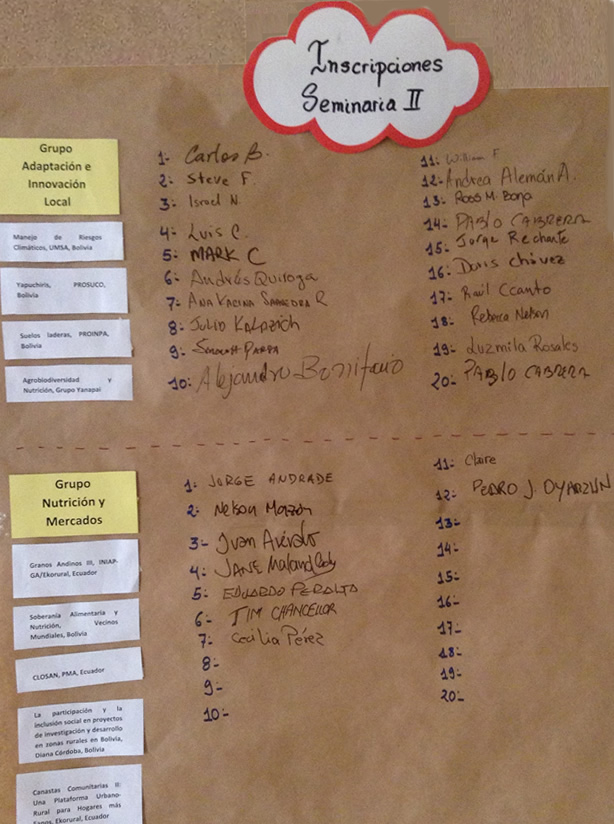 Inscripciones
Seminaria II
Grupo
Adaptación e
Innovación
Local
Manejo de Riesgos
Climáticos, UMSA, Bolivia
Yapuchiris, PROSUCO,
Bolivia
Suelos laderas, PROINPA,
Bolivia
Agrobiodiversidad y
Nutrición, Grupo Yanapai
1- Carlos B.
2- Steve F
3- Israel N.
4- Luis C.
5- MARK C
6- Andrés Quiroga
7- ANA KARINA SAAVEDRA R
8- JULIO
9-
10- Alejandro Bonifacio
11- William F
12- Andrea Alemán A.
13- Ross M. Borja
14- PABLO CABRERA
15- Jorge Rechante
16- Doris Chávez
17- Raúl Ccanto
18- Rebecca Nelson
19- Luzmila Rosales
20- PABLO CABRERA
Grupo
Nutrición y
Mercados
Granos Andinos III, INIAP-
GA/Ekorural, Ecuador
Soberanía Alimentaria y
Nutrición, Vecinos
Mundiales, Bolivia
CLOSAN, PMA, Ecuador
La participación y la
inclusión social en proyectos
de investigación y desarrollo
en zonas rurales en Bolivia,
Diana Córdoba, Bolivia
Canastas Comunitarias II:
Una Plataforma Urbano-
Rural para Hogares más
Sanos, Ekorural, Ecuador
1- JORGE ANDRADE
2- Nelson Mazón
3- Juan
4- JANE
5- EDUARDO PERALTA
6- TIM CHANCELLOR
7- Cecilia Pérez
8-
9-
10-
11- Claire
12- PEDRO J. OYARZUN
13-
14-
15-
16-
17-
18-
19-
20-